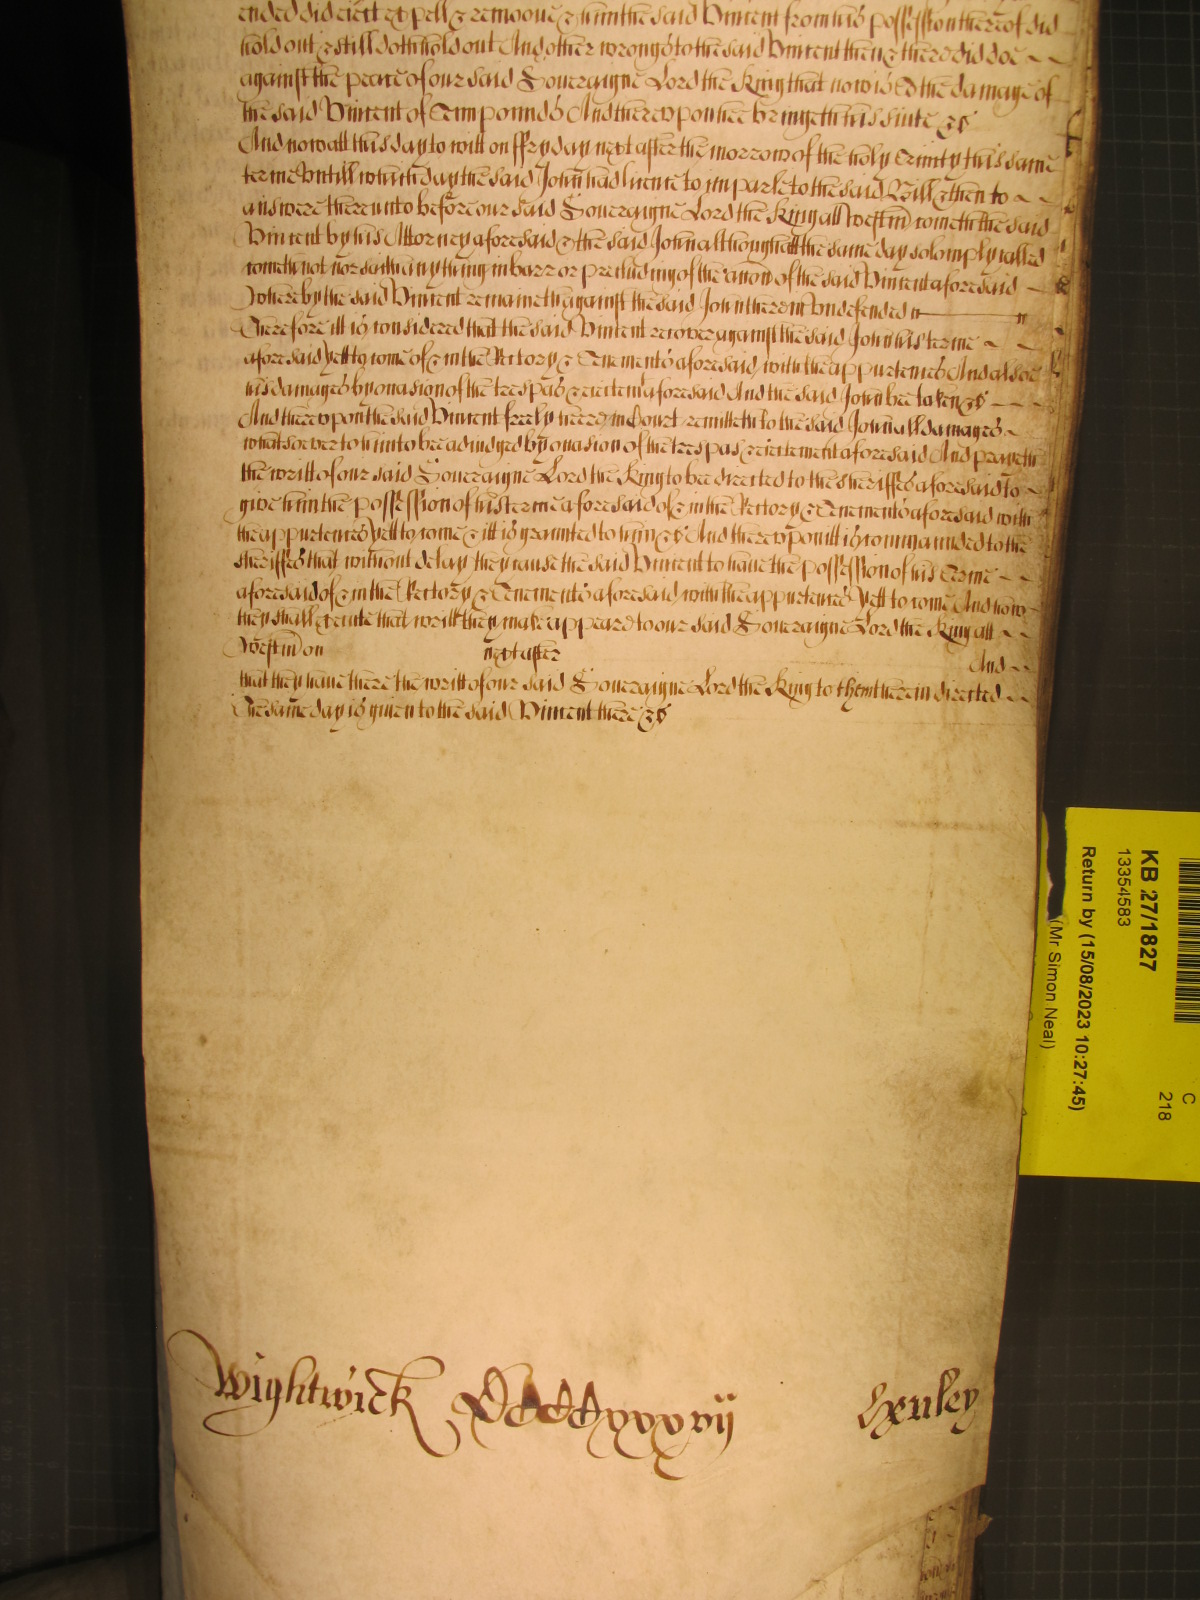 ended did eject expell & remoove & him the said Vincent from his possession thereof did
hold out & still doth hold out And other wrongs to the said Vincent then & there did doe
against the peace of our said Soveraigne Lord the King that now is To the damage of
the said Vincent of Tenn pounds And thereupon hee bringeth his suite &c
And now att this day to witt on ffryday next after the morrow of the holy Trinity this same
terme Untill which day the said John had licence to imparle to the said Bill & then to
answere thereunto before our said Soveraigne Lord the King att Westm̃ cometh the said
Vincent by his Attorney aforesaid & the said John although att the same day solemply called
cometh not nor saith any thing in barr or precluding of the acc̃on of the said Vincent aforesaid
Whereby the said Vincent remaineth against the said John therein Undefended
Therefore itt is considered that the said Vincent recover against the said John his terme
aforesaid yett to come of & in the Rectory & Tenements aforesaid with the appurteñces And alsoe
his damages by occasion of the trespas & ejectemt aforesaid And the said John bee taken &c
And thereupon the said Vincent freely heere in Court remitteth to the said John all damages
whatsoever to him to bee adjudged by occasion of the trespas & ejectement aforesaid And prayeth
the writt of our said Soveraigne Lord the King to bee directed to the sheriffes aforesaid to
give him the possession of his terme aforesaid of & in the Rectory & Tenements aforesaid with
the appurteñces yett to come & itt is graunted to him &c And thereupon itt is commaunded to the
sheriffes that without delay they cause the said Vincent to have the possession of his Terme
aforesaid of & in the Rectory & Tenements aforesaid with the appurteñces yett to come And how
they shall execute that writt they make appeare to our said Soveraigne Lord the King att
Westm̃ on next after And
that they have there the writt of our said Soveraigne Lord the King to them therein directed
The same day is given to the said Vincent there &c
Wightwick CCCCxxxvij Henley
KB 27/1827
13354583
Return by (15/08/2023 10:27:45)
(Mr Simon Neal)
C
218